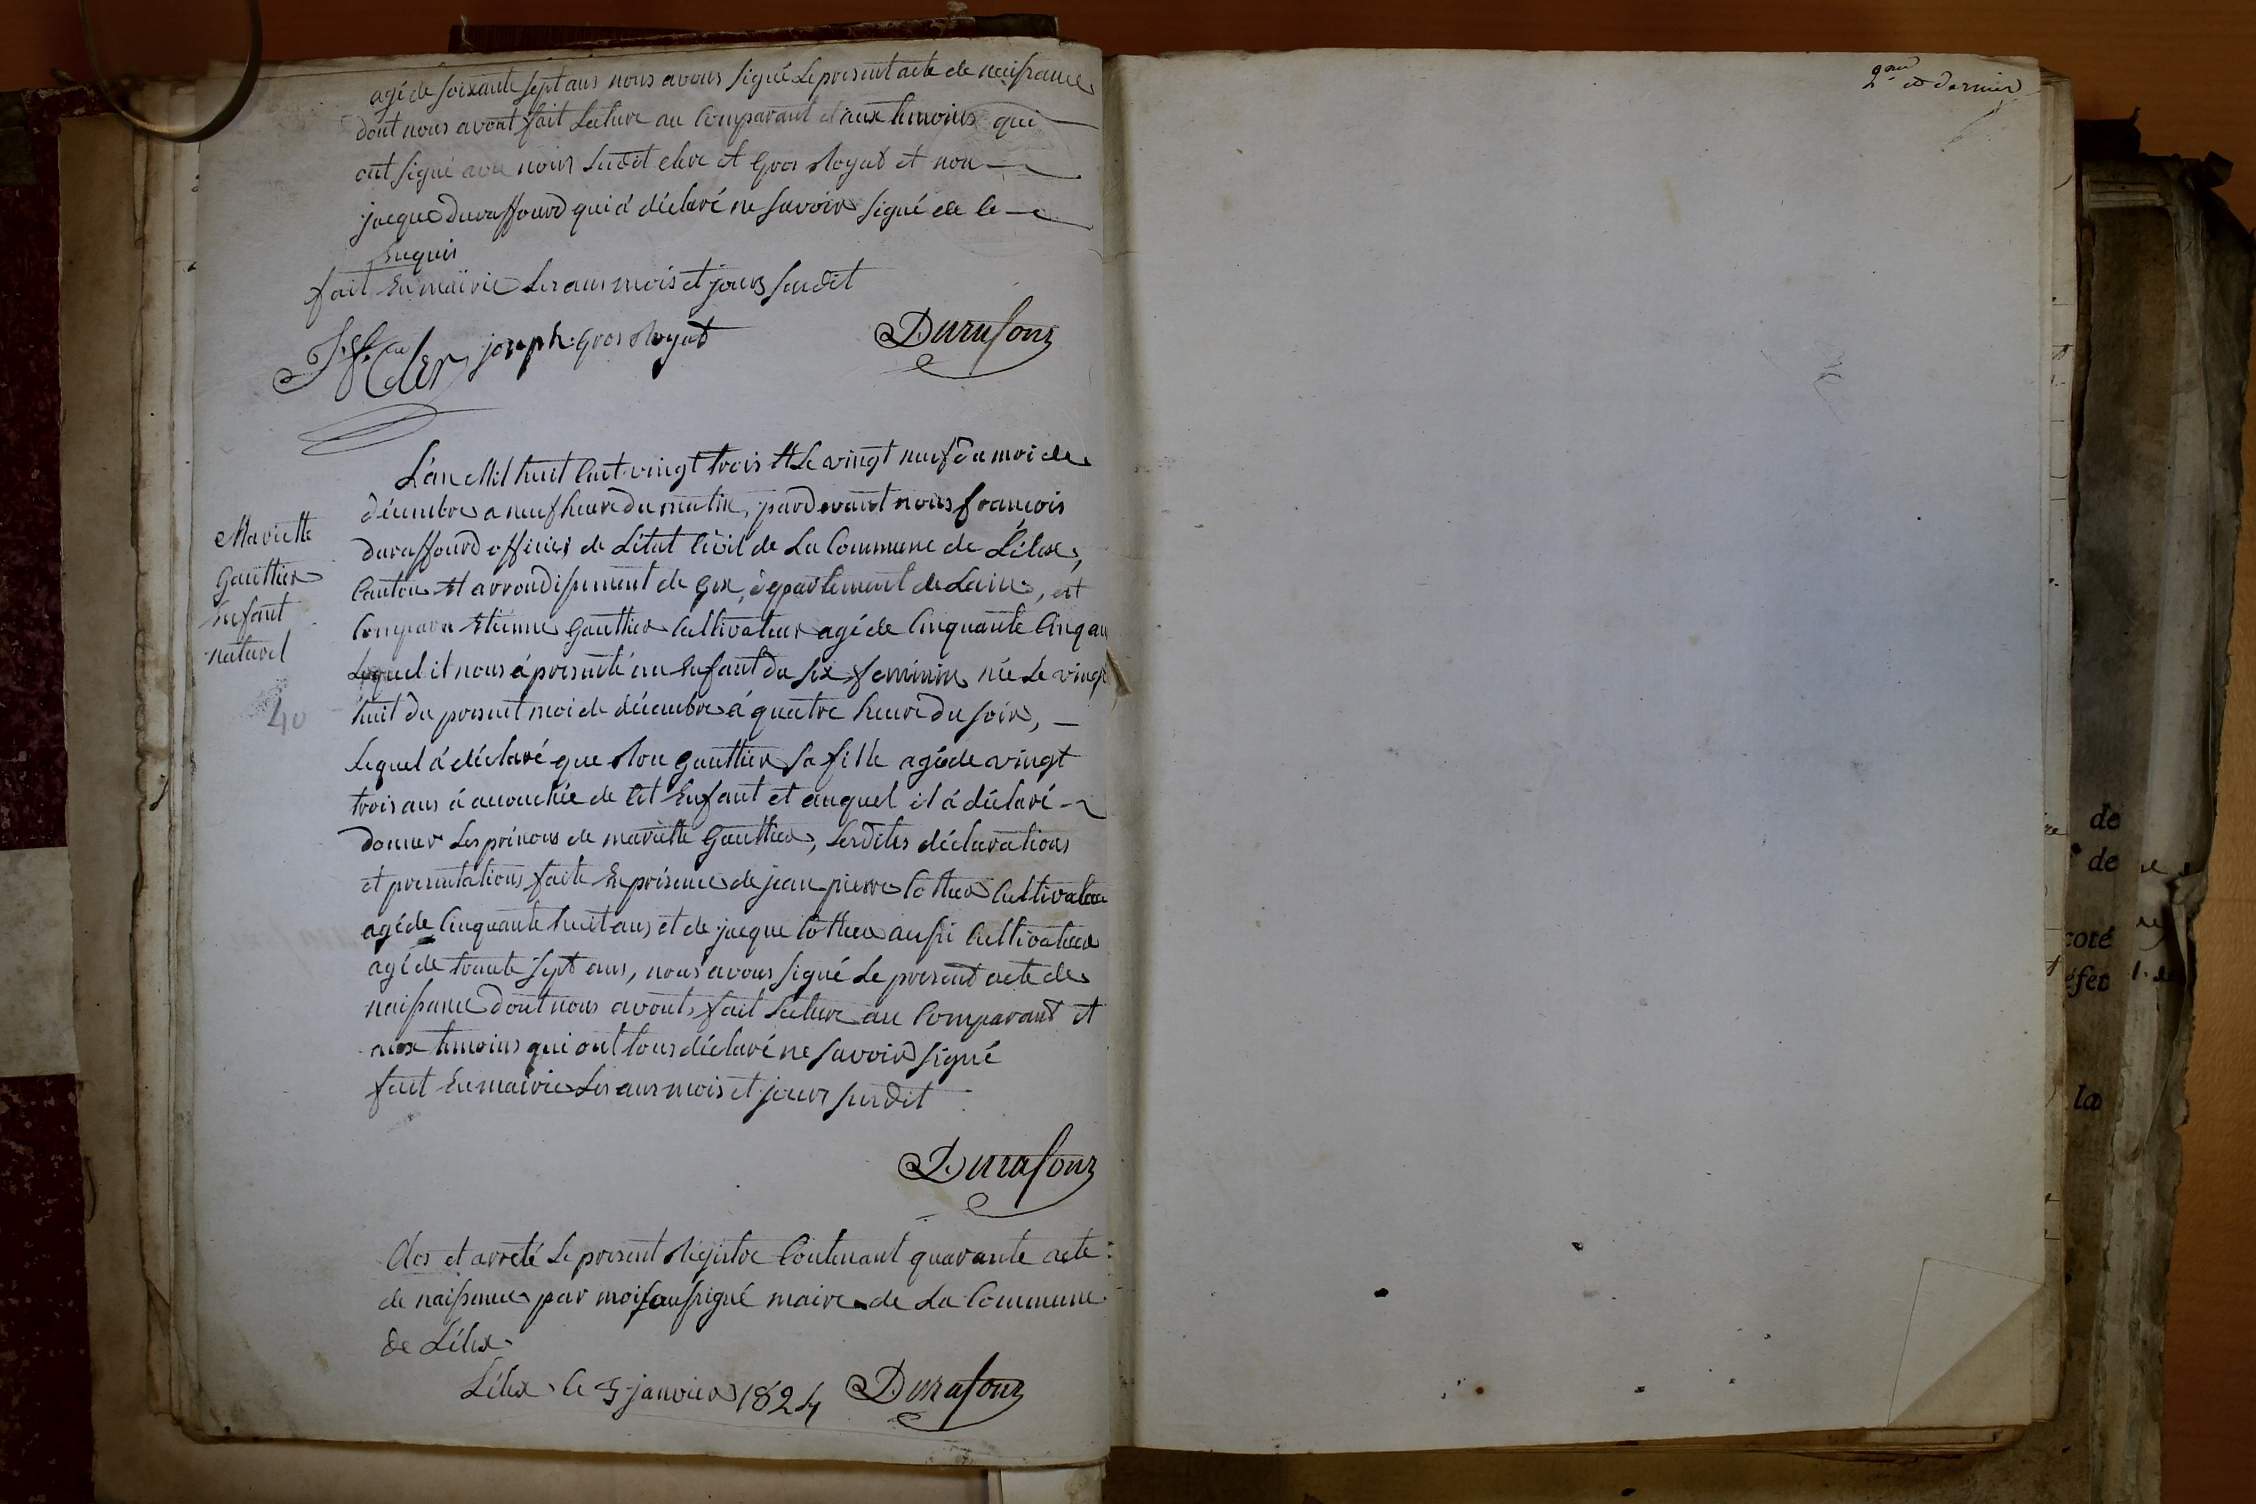 agé de soixante sept ans nous avons signé le present acte de naissance
dont nous avont fait lecture au comparant et aux temoins qui
ont signé avec nous ledit eler et Gros Royat et non
jacque Duraffourd qui à déclaré ne savoir signé de ce
enquis
fait en mairie les ans mois et jours susdit
joseph Gros Royat
Durafour
L'an Mil huit cent vingt trois et le vingt neuf du moi de
décembre a neuf heure du matin, pardevant nous françois
Duraffourd officier de l'état civil de la commune de Lélex,
Mariette
Gauthier
enfant
naturel
40
canton et arrondissement de Gex, département de Lain, est
comparu etienne Gauthier cultivateur agé de cinquante cinq an
lequel il nous à presenté un enfant du sex feminin née le vingt
huit du present moi de décembre à quatre heure du soir,
lequel à déclaré que Gauthier sa fille agée de vingt
trois ans à accouchée de cet enfant et auquel il à déclaré
donner les prénoms de mariette Gauthier, lesdites déclarations
et presentations faite en présence de jean pierre cultivateur
agé de cinquante huit ans et de jacque aussi cultivateur
agé de trente sept ans, nous avons signé le present acte de
naissance dont nous avonts fait lecture au comparant et
aux temoins qui ont tous déclaré ne savoir signé
fait en mairie les ans mois et jours susdit
Durafour
Clos et arreté le present Registre contenant quarante acte
de naissance par moi soussigné maire de la commune
de Lélex
Lélex le 5 janvier 1824 Durafour
2me et dernier
de
de
coté
la